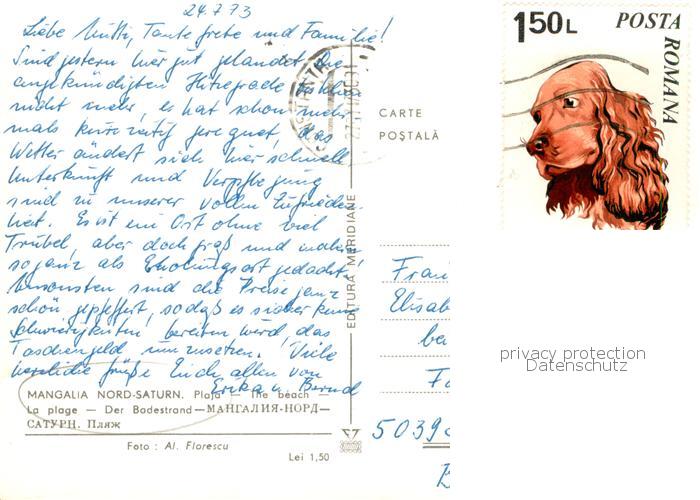 24.7.73
Liebe Mutti, Tante Grete und Familie!
Sind gestern hier gut gelandet. Die
angekündigten Hitzegrade
nicht mehr, es hat schon mehr-
mals kurzzeitig geregnet, das
Wetter ändert sich hier schnell
Unterkunft und Verpflegung
sind zu unserer vollen Zufrieden-
heit. Es ist ein Ort ohne viel
Trubel, aber doch groß und
so ganz als Erholungsort gedacht!
Ansonsten sind die Preise ganz
schön gepfeffert, sodaß es sicher keine
Schwierigkeiten bereiten wird, das
Taschengeld umzusetzen. Viele
herzliche Grüße Euch allen von
Erika u. Bernd
MANGALIA NORD-SATURN. Plaja — The beach —
La plage — Der Badestrand — МАНГАЛИЯ-НОРД—
САТУРН. Пляж
Foto : Al. Florescu
Lei 1,50
EDITURA MERIDIANE
CARTE
POŞTALĂ
1,50L
POSTA
ROMANA
Frau
Elisab
be
5039
privacy protection
Datenschutz